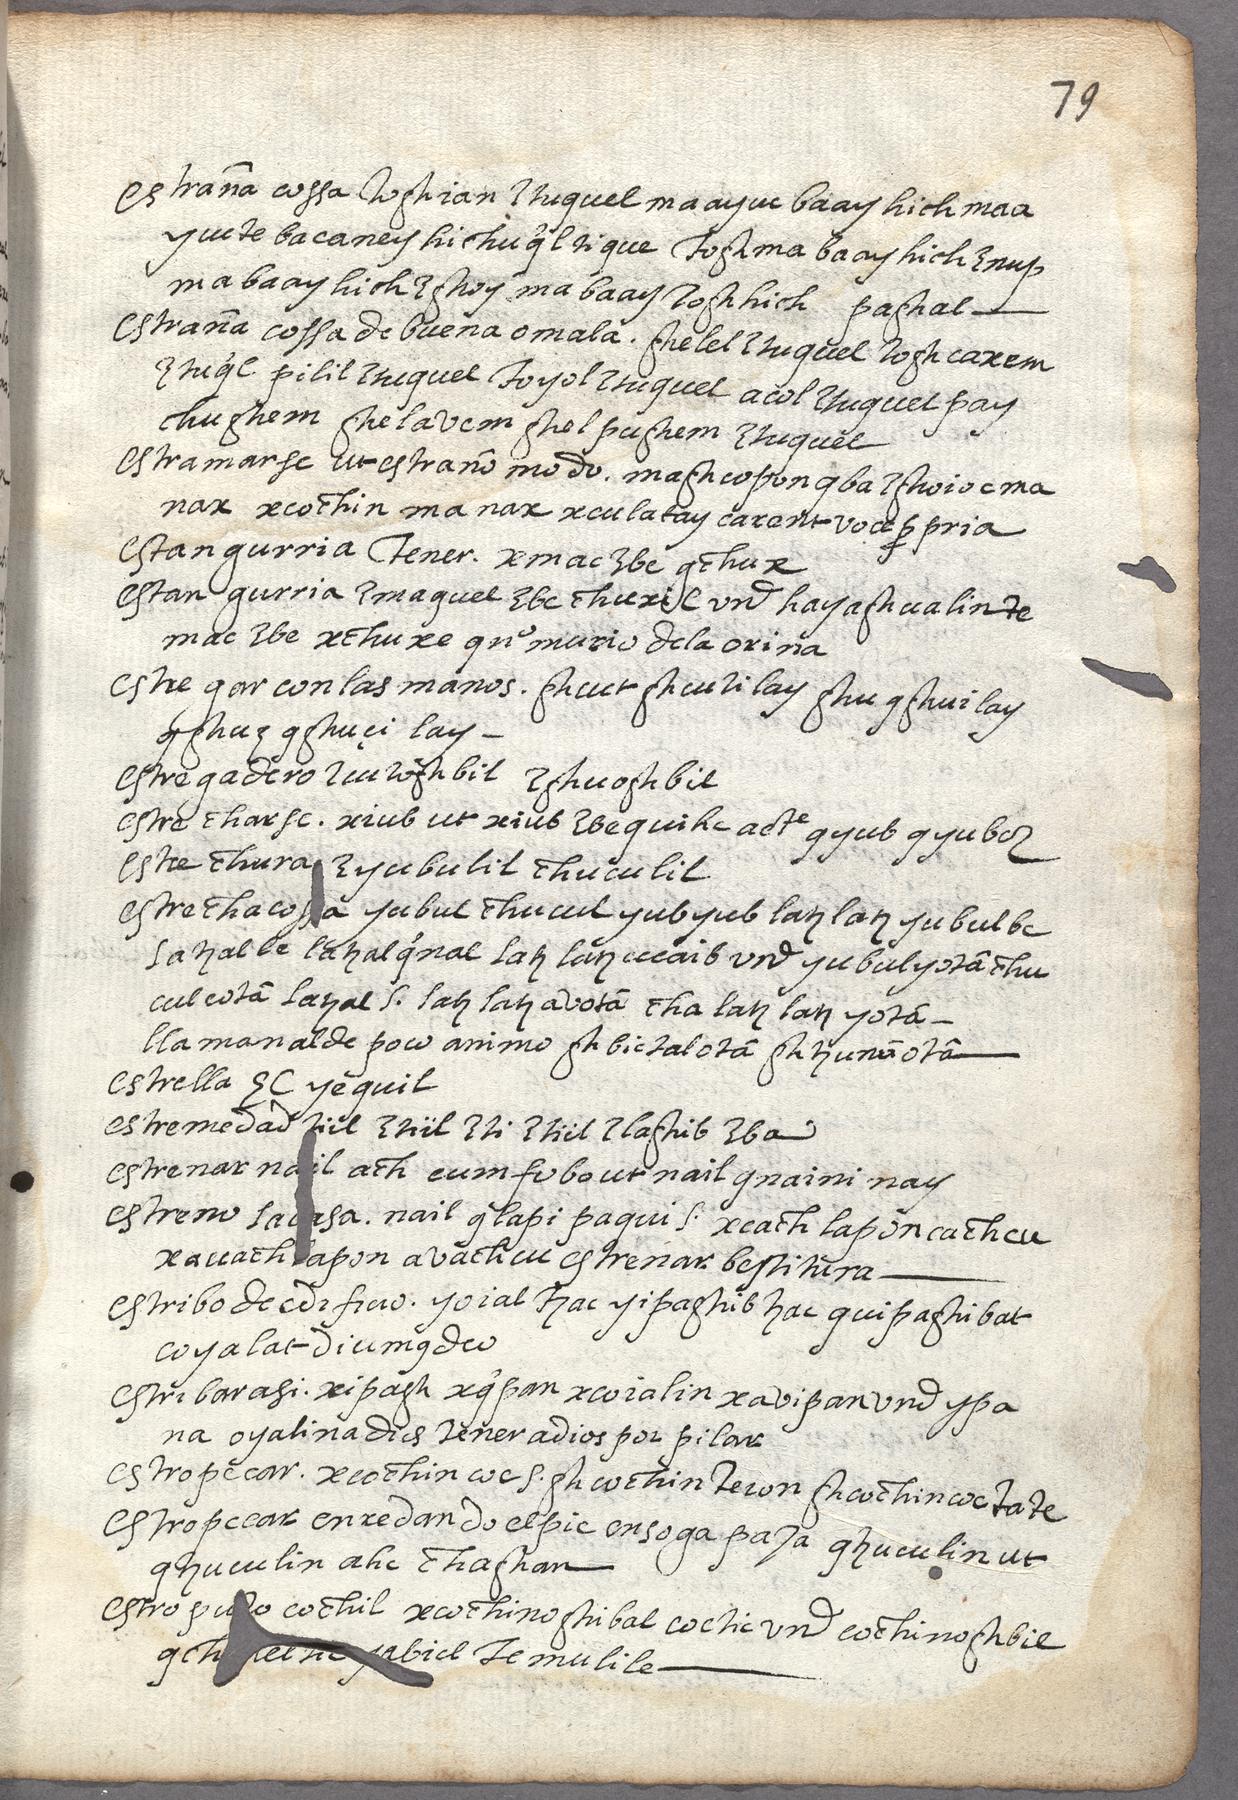 79
estraña cossa toghian ꜫtuquel maayuc baay hich maa
yucte bacaney hichu q̃l tique toghma baay hich ꜫnup
ma baay hich ꜫghoy ma baay toghhich paghal
estraña cossa de buena o mala. ghelel ꜫtuquel togh caxem
ꜫtuq̃l pilil ꜫtuquel toyol ꜫtuquel acol ꜫtuquel pay
chughem ghelavem ghel pughem ꜫtuquel
estramarse ut estraño modo. magh copon qba ꜫghoioc ma
nax xcochin ma nax xculatay carent voce ꝓpria
estangurria tener. xmac ꜫbe qchux
estangurria ꜫmaquel ꜫbe chuxil vnd̃ hayaghualinte
mac ꜫbe xchuxe qnº murio dela orina
estregar con las manos. ghut ghutilay ghu qghuilay
qghuꜫ qghuçi lay
estregadero ꜫcutoghbil ꜫghuoghbil
estrecharse. xiub ut xiub ꜫbe quihe acte qyub qyuboꜫ
estrechura ꜫyubulil chuculil
estrecha cossa yubul chucul yubyub latꜩ latꜩ yubul be
latꜩal be latꜩal q̃nal latꜩ latꜩ ucaib vnd̃ yubul yotã chu
cul cotã latꜩal s. latꜩ latꜩ avotã cha latꜩ latꜩ yotã
llaman al de poco animo ghbictal otã gh tꜩunũ otã
estrella ꜫC yequil
estremedad tiil ꜫtiil ꜫti ꜫtiil ꜫlaghib ꜫba
estrenar nail ach cum subo ut nail qnaini nay
estreno la casa. nail q̃lapi paqui s. xcach lapon cachcu
xauach lapon avachcu estrenar bestitura
estribo de edificio. yoial tꜩac yipaghib tꜩac quipaghibat
coyalat dicimq deo
estribar asi. xipagh xq̃pan xcoialin xavipan vnd̃ ypa
na oyalina dios tener a dios por pilar
estropecar. xcochin coc s. gh cochin tecon ghcochin coc tate
estropecar enredando el pie en soga paja qtꜩuculin ut
qtꜩuculin ahe chaghan
estropieço cochil xcochinoghibal cochic vnd̃ cochinoghbil
yabicl te mulile